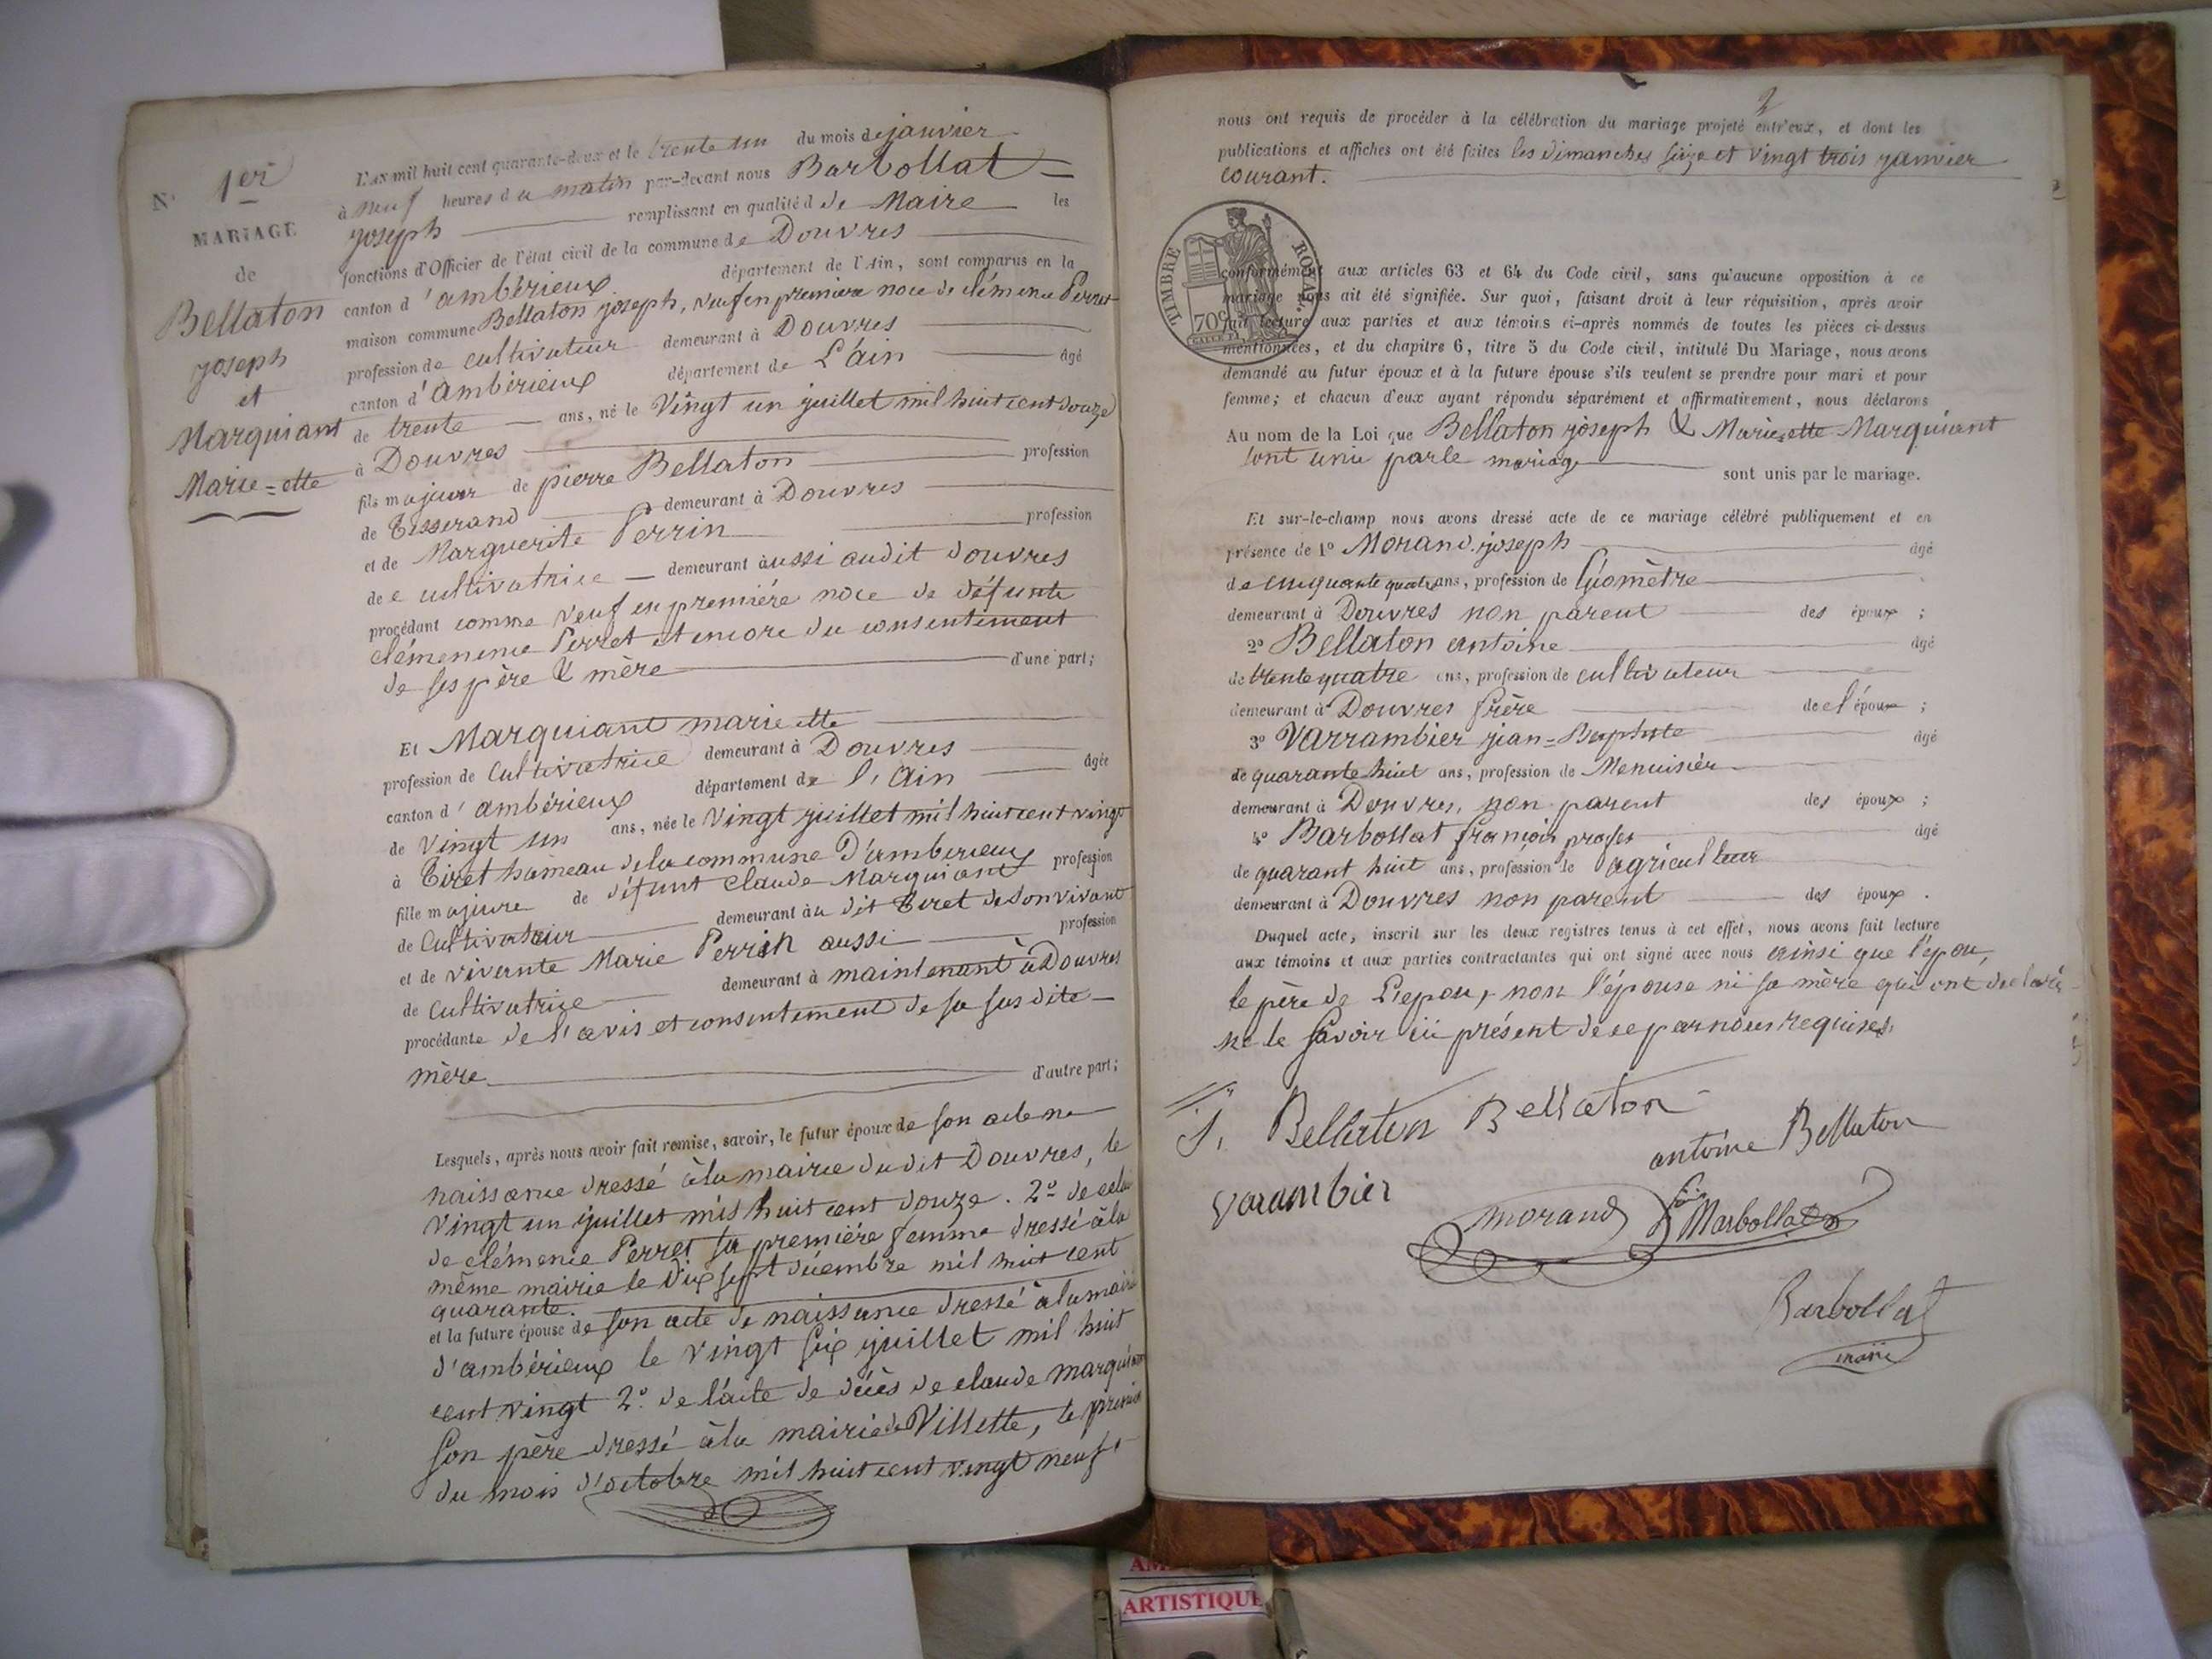 N° 1er
MARIAGE
de
Bellaton
joseph
et
Marquiant
Marie=ette
L'an mil huit cent quarante-deux et le trente un du mois de janvier
à neuf heures du matin par-devant nous Barbollat
joseph remplissant en qualité d de Maire les
fonctions d'Officier de l'état civil de la commune de Douvres
canton d'ambérieux département de l'Ain, sont comparus en la
maison commune Bellaton joseph, veuf en premiere noce de clémence Perret
profession de cultivateur demeurant à Douvres
canton d'Ambérieux département de L'ain âgé
de trente ans, né le Vingt un juillet mil huit cent douze
à Douvres
fils majeur de pierre Bellaton profession
de Tisserand demeurant à Douvres
et de Marguerite Perrin profession
de cultivatrice demeurant àussi audit douvres
procédant comme veuf en première noce de défunte
clémence Perret et encore du consentement
de ses père & mère d'une part;
Et Marquiant marie ette
profession de Cultivatrice demeurant à Douvres
canton d'ambérieux département de l'Ain âgée
de vingt un ans, née le Vingt juillet mil huit cent vingt
à Tiret hameau de la commune D'amberieux
fille majeure de défunt Claude Marquiant profession
de Cultivateur demeurant àu dit Tiret de son vivant
et de vivante Marie Perrin aussi profession
de Cultivatrice demeurant à maintenant à Douvres
procédante de l'avis et consentement de sa sus dite
mère d'autre part;
Lesquels, après nous avoir fait remise, savoir, le futur époux de son acte de
naissance dressé à la mairie dudit Douvres, le
vingt un juillet mil huit cent douze. 2° de celui
de clémence Perret sa première femme dressé à la
même mairie le dix sept décembre mil huit cent
quarante.
et la future épouse de son acte de naissance dressé à la mairie
d'ambérieux le vingt six juillet mil huit
cent vingt 2° de l'acte de décès de claude marquiant
son père dressé à la mairie de Villette, le premier
du mois d'octobre mil huit cent vingt neuf
2
nous ont requis de procéder à la célébration du mariage projeté entr'eux, et dont les
publications et affiches ont été faites les dimanches seize et vingt trois janvier
courant.
TIMBRE ROYAL
70c
conformément aux articles 63 et 64 du Code civil, sans qu'aucune opposition à ce
mariage nous ait été signifiée. Sur quoi, faisant droit à leur réquisition, après avoir
fait lecture aux parties et aux témoins ci-après nommés de toutes les pièces ci-dessus
mentionnées, et du chapitre 6, titre 5 du Code civil, intitulé Du Mariage, nous avons
demandé au futur époux et à la future épouse s'ils veulent se prendre pour mari et pour
femme; et chacun d'eux ayant répondu séparément et affirmativement, nous déclarons
Au nom de la Loi que Bellaton joseph & Marie=ette Marquiant
sont unis par le mariage sont unis par le mariage.
Et sur-le-champ nous avons dressé acte de ce mariage célébré publiquement et en
présence de 1° Morand joseph âgé
de cinquante quatre ans, profession de Géomètre
demeurant à Douvres non parent des époux ;
2° Bellaton antoine âgé
de trente quatre ans, profession de cultivateur
demeurant à Douvres frère de l'époux ;
3° Varrambier jean=Baptiste âgé
de quarante huit ans, profession de Menuisier
demeurant à Douvres, non parent des époux ;
4° Barbollat françois âgé
de quarant huit ans, profession de agriculteur
demeurant à Douvres non parent des époux .
Duquel acte, inscrit sur les deux registres tenus à cet effet, nous avons fait lecture
aux témoins et aux parties contractantes qui ont signé avec nous ainsi que l'époux,
le père de l'époux, non l'épouse ni sa mère qui ont déclaré
ne le savoir ici présent de ce par nous requises.
J. Bellaton Bellaton
antoine Bellaton
Varambier
morand
Barbollat
maire
ARTISTIQUE